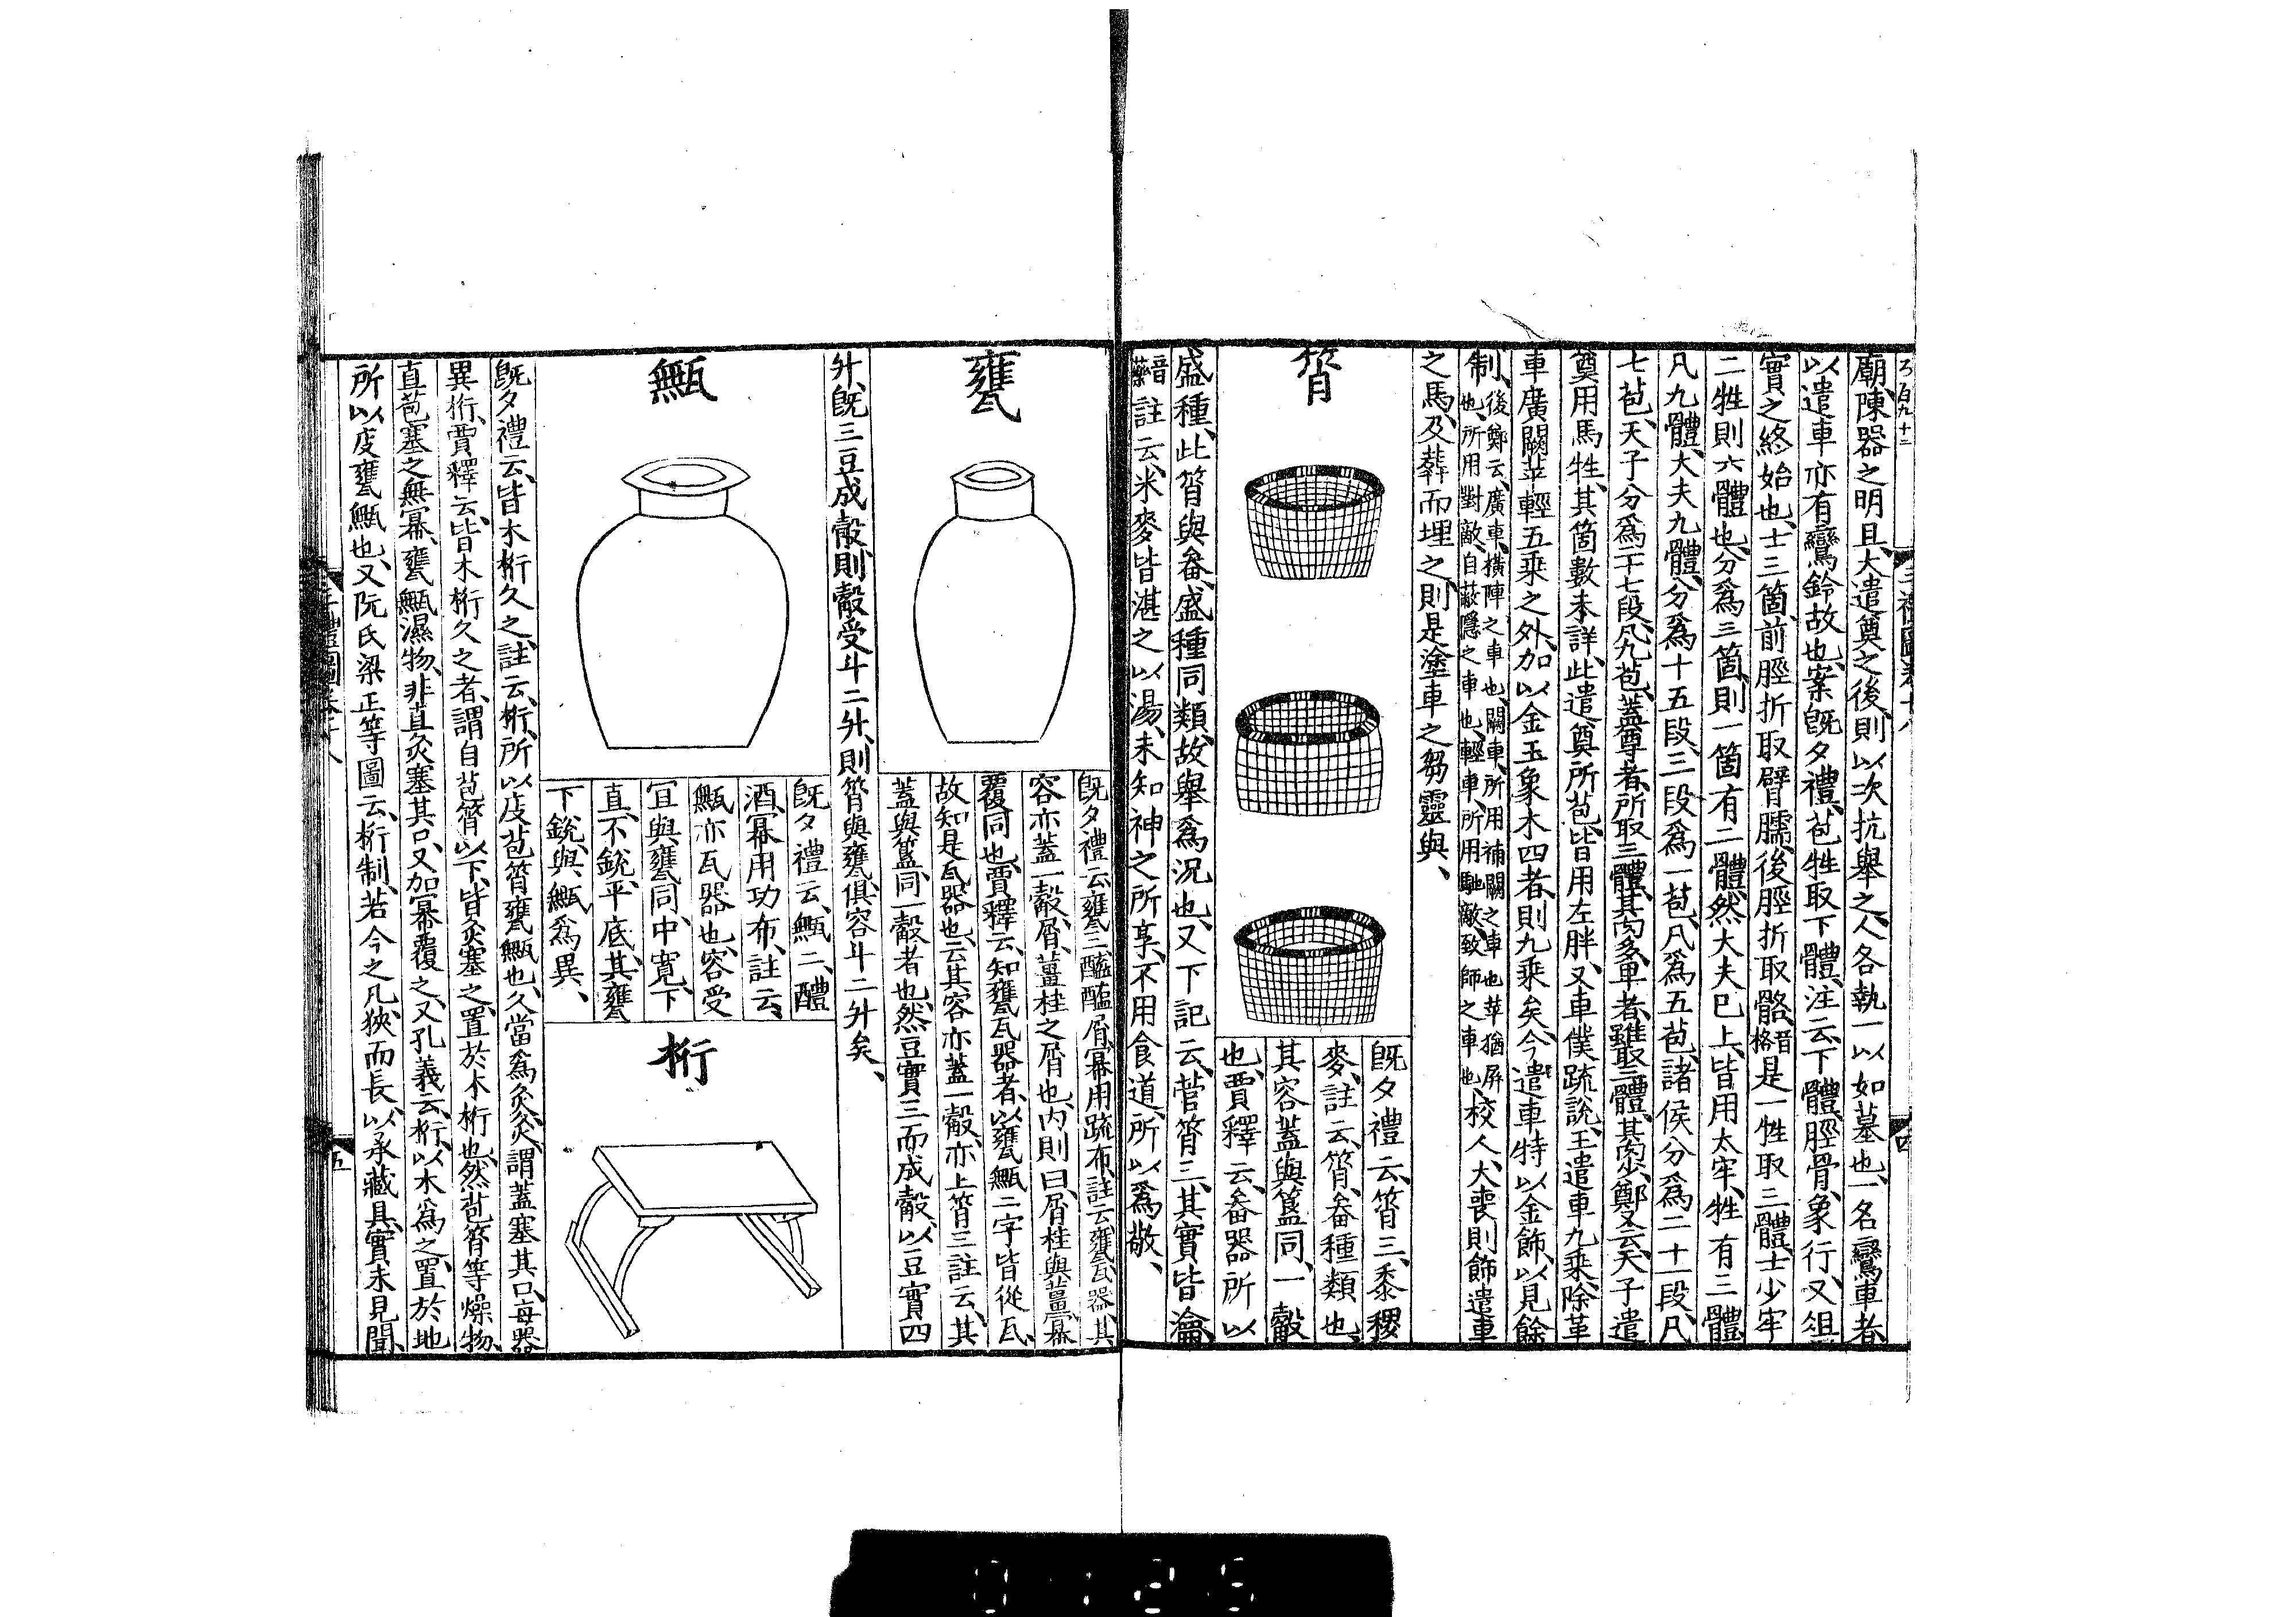 廟、陳器之明旦、大遣奠之後、則以次抗舉之、人各執一以如墓也、一名鸞車者、
以遣車亦有鸞鈴故也、案旣夕禮、苞牲取下體、注云、下體、脛骨、象行、又俎
實之終始也、士三箇、前脛折取臂臑、後脛折取骼、音格是一牲取三體、士少牢
二牲則六體也、分爲三箇、則一箇有二體、然大夫已上、皆用太牢、牲有三體
凡九體、大夫九體、分爲十五段、三段爲一苞、凡爲五苞、諸侯分爲二十一段、凡
七苞、天子分爲二十七段、凡九苞、蓋尊者所取三體、其肉多、卑者雖取三體、其肉少、鄭又云、天子遣
奠用馬牲、其箇數未詳、此遣奠所苞、皆用左胖、又車僕疏說、王遣車九乘、除革
車廣闕苹輕五乘之外、加以金玉象木四者、則九乘矣、今遣車特以金飾、以見餘
制、後鄭云、廣車、橫陣之車也、闕車、所用補闕之車也、苹猶屏
也、所用對敵、自蔽隱之車也、輕車、所用馳敵致師之車也、校人、大喪則飾遣車
之馬、及葬而埋之、則是塗車之芻靈與、
筲
旣夕禮云、筲三、黍稷
麥、註云、筲、畚種類也、
其容蓋與簋同、一觳
也、賈釋云、畚器所以
盛種、此筲與畚、盛種同類、故舉爲況也、又下記云、菅筲三、其實皆瀹、
音藥註云、米麥皆湛之以湯、未知神之所享、不用食道、所以爲敬、
三禮圖卷十八
四
甕
旣夕禮云、甕三、醯醢屑、冪用疏布、註云、甕、瓦器、其
容亦蓋一觳、屑、薑桂之屑也、内則曰、屑桂與薑、冪
覆同也、賈釋云、知甕瓦器者、以甕甒二字皆從瓦、
故知是瓦器也、云其容亦蓋一觳、亦上筲三註云、其
蓋與簋同一觳者也、然豆實三而成觳、以豆實四
升、旣三豆成觳、則觳受斗二升、則筲與甕、俱容斗二升矣、
甒
旣夕禮云、甒二、醴
酒、冪用功布、註云、
甒亦瓦器也、容受
宜與甕同、中寬、下
直、不銳、平底、其甕
下銳、與甒爲異、
桁
旣夕禮云、皆木桁久之、註云、桁、所以庋苞筲甕甒也、久當爲灸、灸、謂蓋塞其口、每器
異桁、賈釋云、皆木桁久之者、謂自苞筲以下、皆灸塞之、置於木桁也、然苞筲等燥物、
直苞塞之無冪、甕甒濕物、非直灸塞其口、又加冪覆之、又孔義云、桁、以木爲之、置於地
所以庋甕甒也、又阮氏梁正等圖云、桁制、若今之几、狹而長、以承藏具、實未見聞、
三禮圖卷十八
五
0125